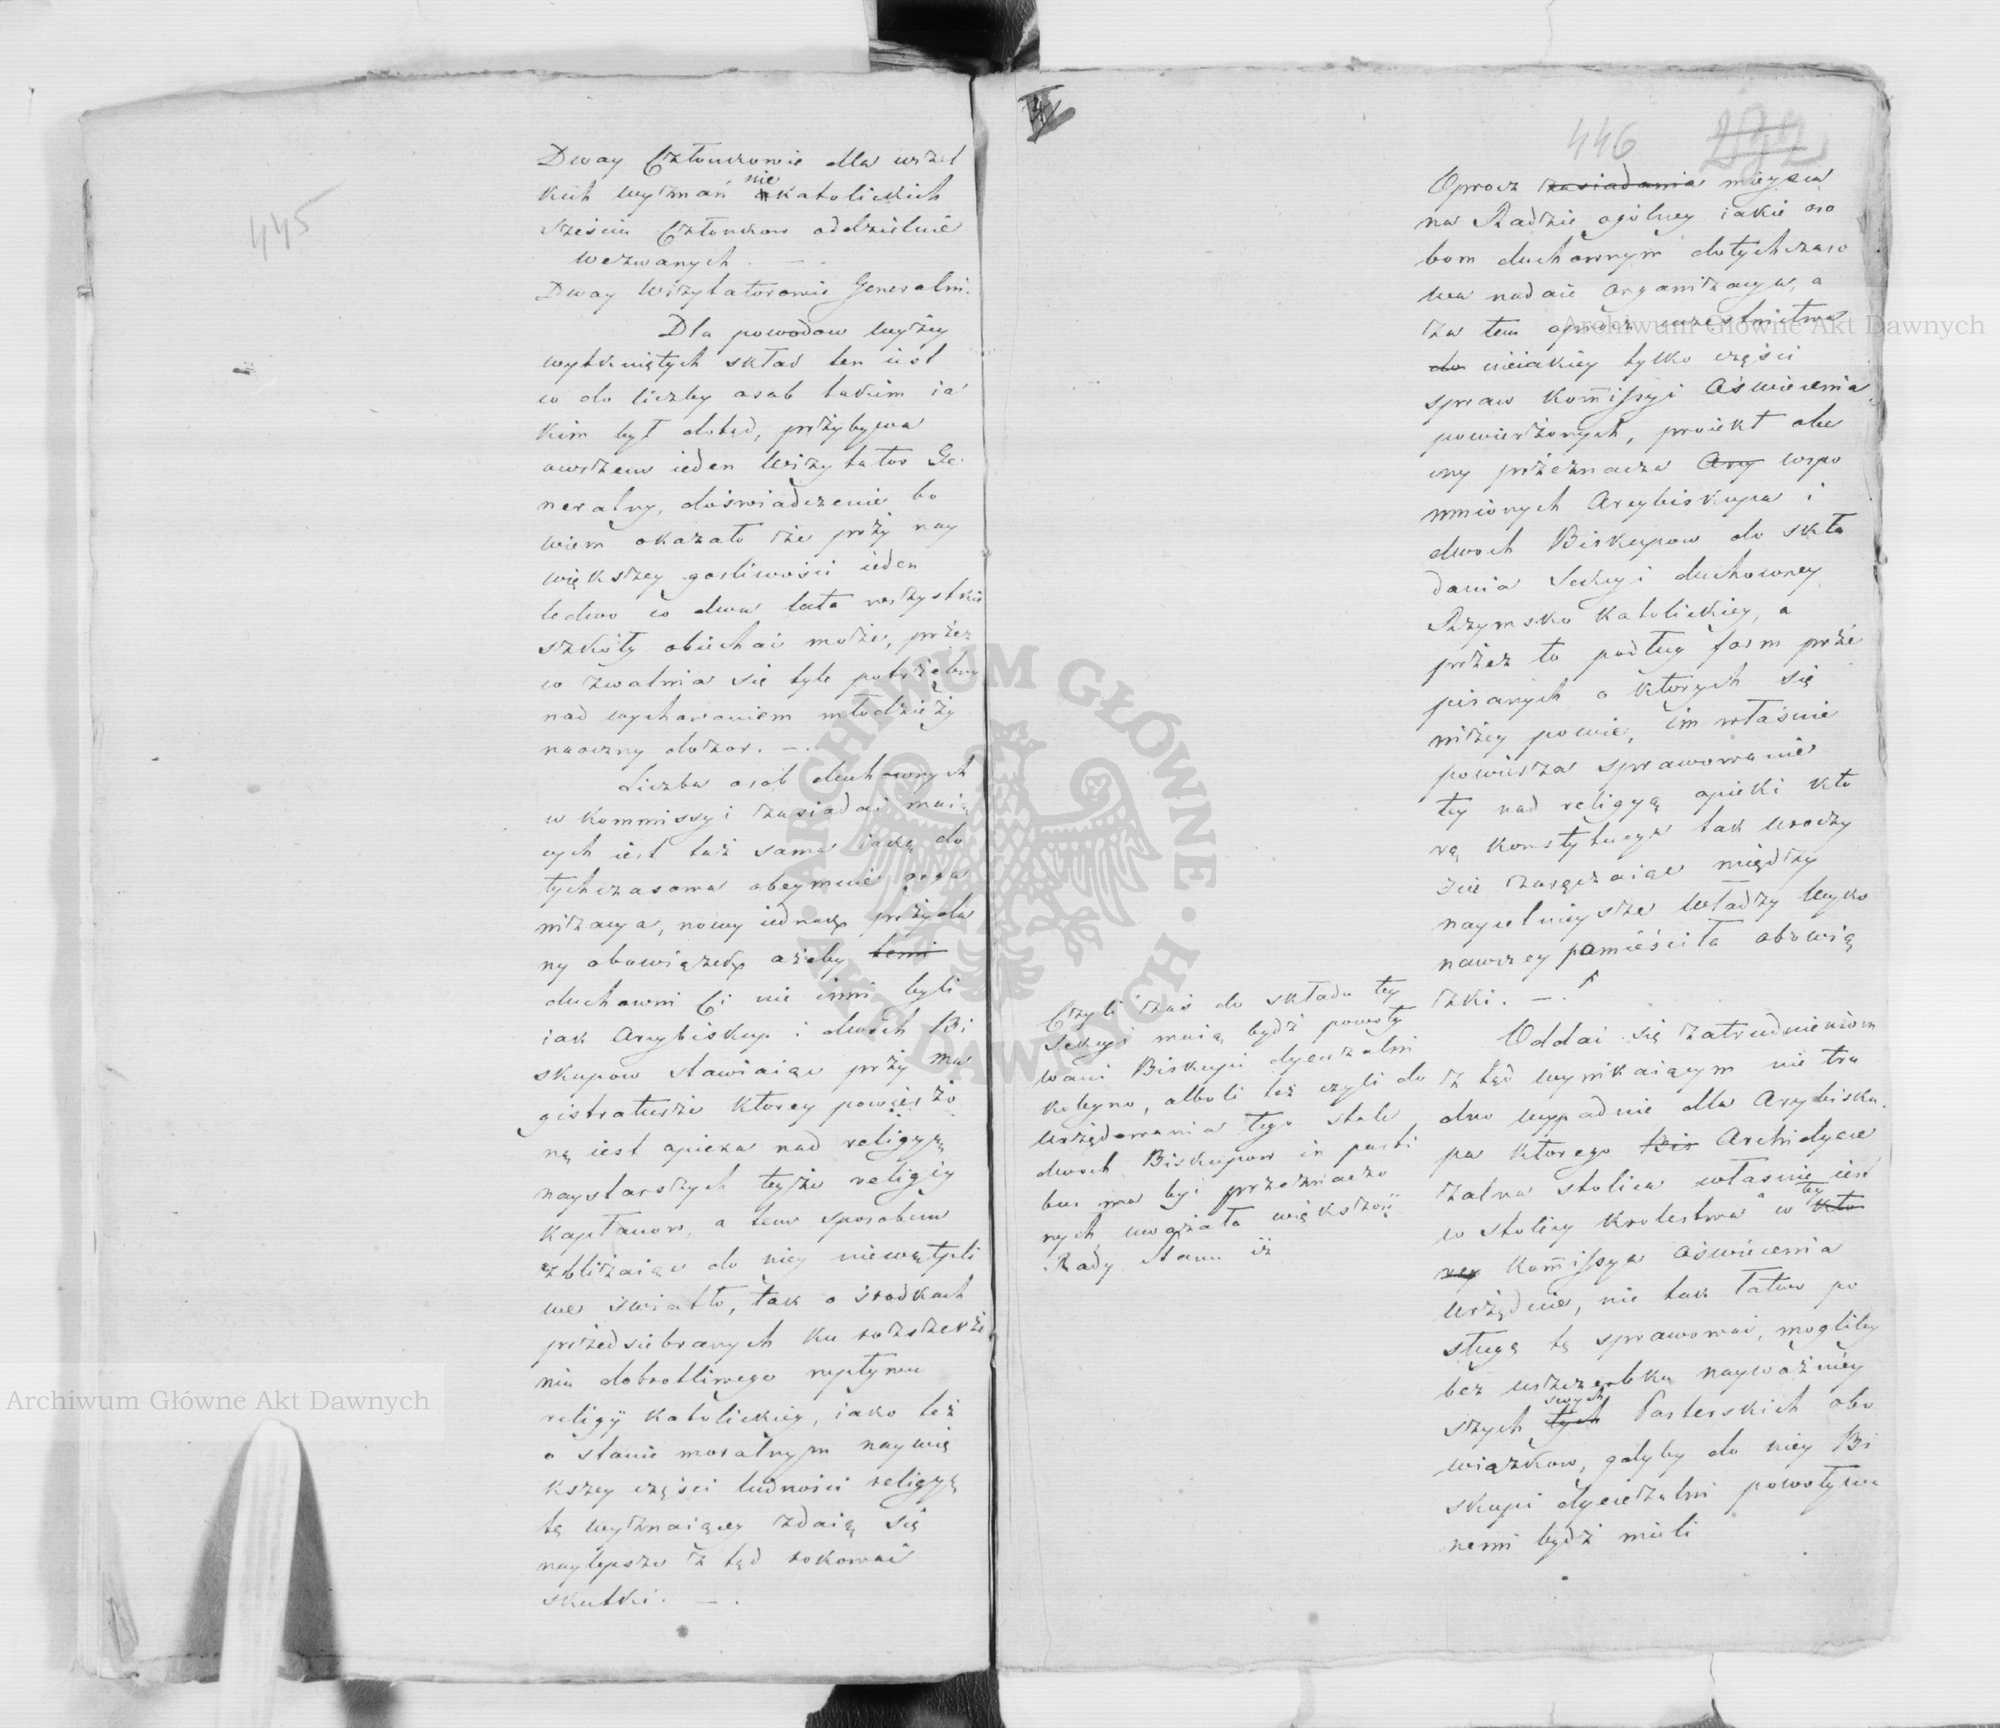 445
Dway Członkowie dla wszel
kich wyznań nie katolickich
Sześciu Członkow oddzielnie
wezwanych. — .
Dway Wizytatorowie Generalni.
Dla powodow wyżey
wytkniętych skład ten iest
co do liczby osob takim ia
kim był dotąd, przybywa
owszem ieden Wizytator Ge
neralny, doświadczenie bo
wiem okazało że przy nay
większey gorliwości ieden
ledwo co dwa lata wszystkie
szkoły obiechać może, przez
co zwalnia się tyle potrzebny
nad wychowaniem młodzieży
naoczny dozor. — .
Liczba osob duchownych
w Kommissyi zasiadać maią
cych iest taż sama iaką do
tychczasowa obeymuie orga
nizacya, nowy iednak przyda
ny obowiązek ażeby temi
duchowni Ci nie inni byli
iak Arcybiskup i dwoch Bi
skupow stawiaiąc przy Ma
gistraturze ktorey powierzo
ną iest opieka nad religyą
naystarszych teyże religii
Kapłanow, a tem sposobem
zbliżaiąc do niey niewątpli
we światło, tak o środkach
przedsiebranych ku rozszerze
niu dobrotliwego wpływu
religii Katolickiey, iako też
o stanie moralnym naywię
kszey części ludności religyą
tę wyznaiącey zdaią się
naylepsze z tąd rokować
skutki. — .
446 292
Oprocz zasiadania mieysca
na Radzie ogolney iakie oso
bom duchownym dotychczaso
wa nadaie organizacya, a
za tem oprocz uczestnictwa
do nieiakiey tylko części
spraw Kommissyi Oświecenia
powierzonych, proiekt obe
cny przeznacza Arcy wspo
mnionych Arcybiskupa i
dwoch Biskupow do skła
dania Sekcyi duchowney
Rzymsko Katolickiey, a
przez to podług form prze
pisanych o ktorych się
niżey powie, im właśnie
powierza sprawowanie
tey nad religyą opieki kto
rą Konstytucya tak uroczy
ście zaręczaiąc między
naycelnieysze Władzy Wyko
nawczey pomieściła obowią
zki. — .
Czyli zaś do składu tey
Sekcyi maią bydź powoły
wani Biskupi dyecezalni
koleyno, alboli też czyli do
urzędowania tego stale
dwoch Biskupow in parti
bus ma być przeznaczo
nych, uważała większość
Rady Stanu iż
Oddać się zatrudnieniom
z tąd wynikaiącym nie tru
dno wypadnie dla Arcybisku
pa ktorego Bis Archidyece
zalna stolica właśnie iest
w stolicy Krolestwa a w tey kto
rey Kommissya Oświecenia
urzęduie, nie tak łatwo po
sługę tę sprawować, mogliby
bez uszczerbku nayważniey
szych tych swych Pasterskich obo
wiązkow, gdyby do niey Bi
skupi dyecezalni powoływa
nemi bydź mieli
Archiwum Główne Akt Dawnych
Archiwum Główne Akt Dawnych
ARCHIWUM GŁÓWNE AKT DAWNYCH